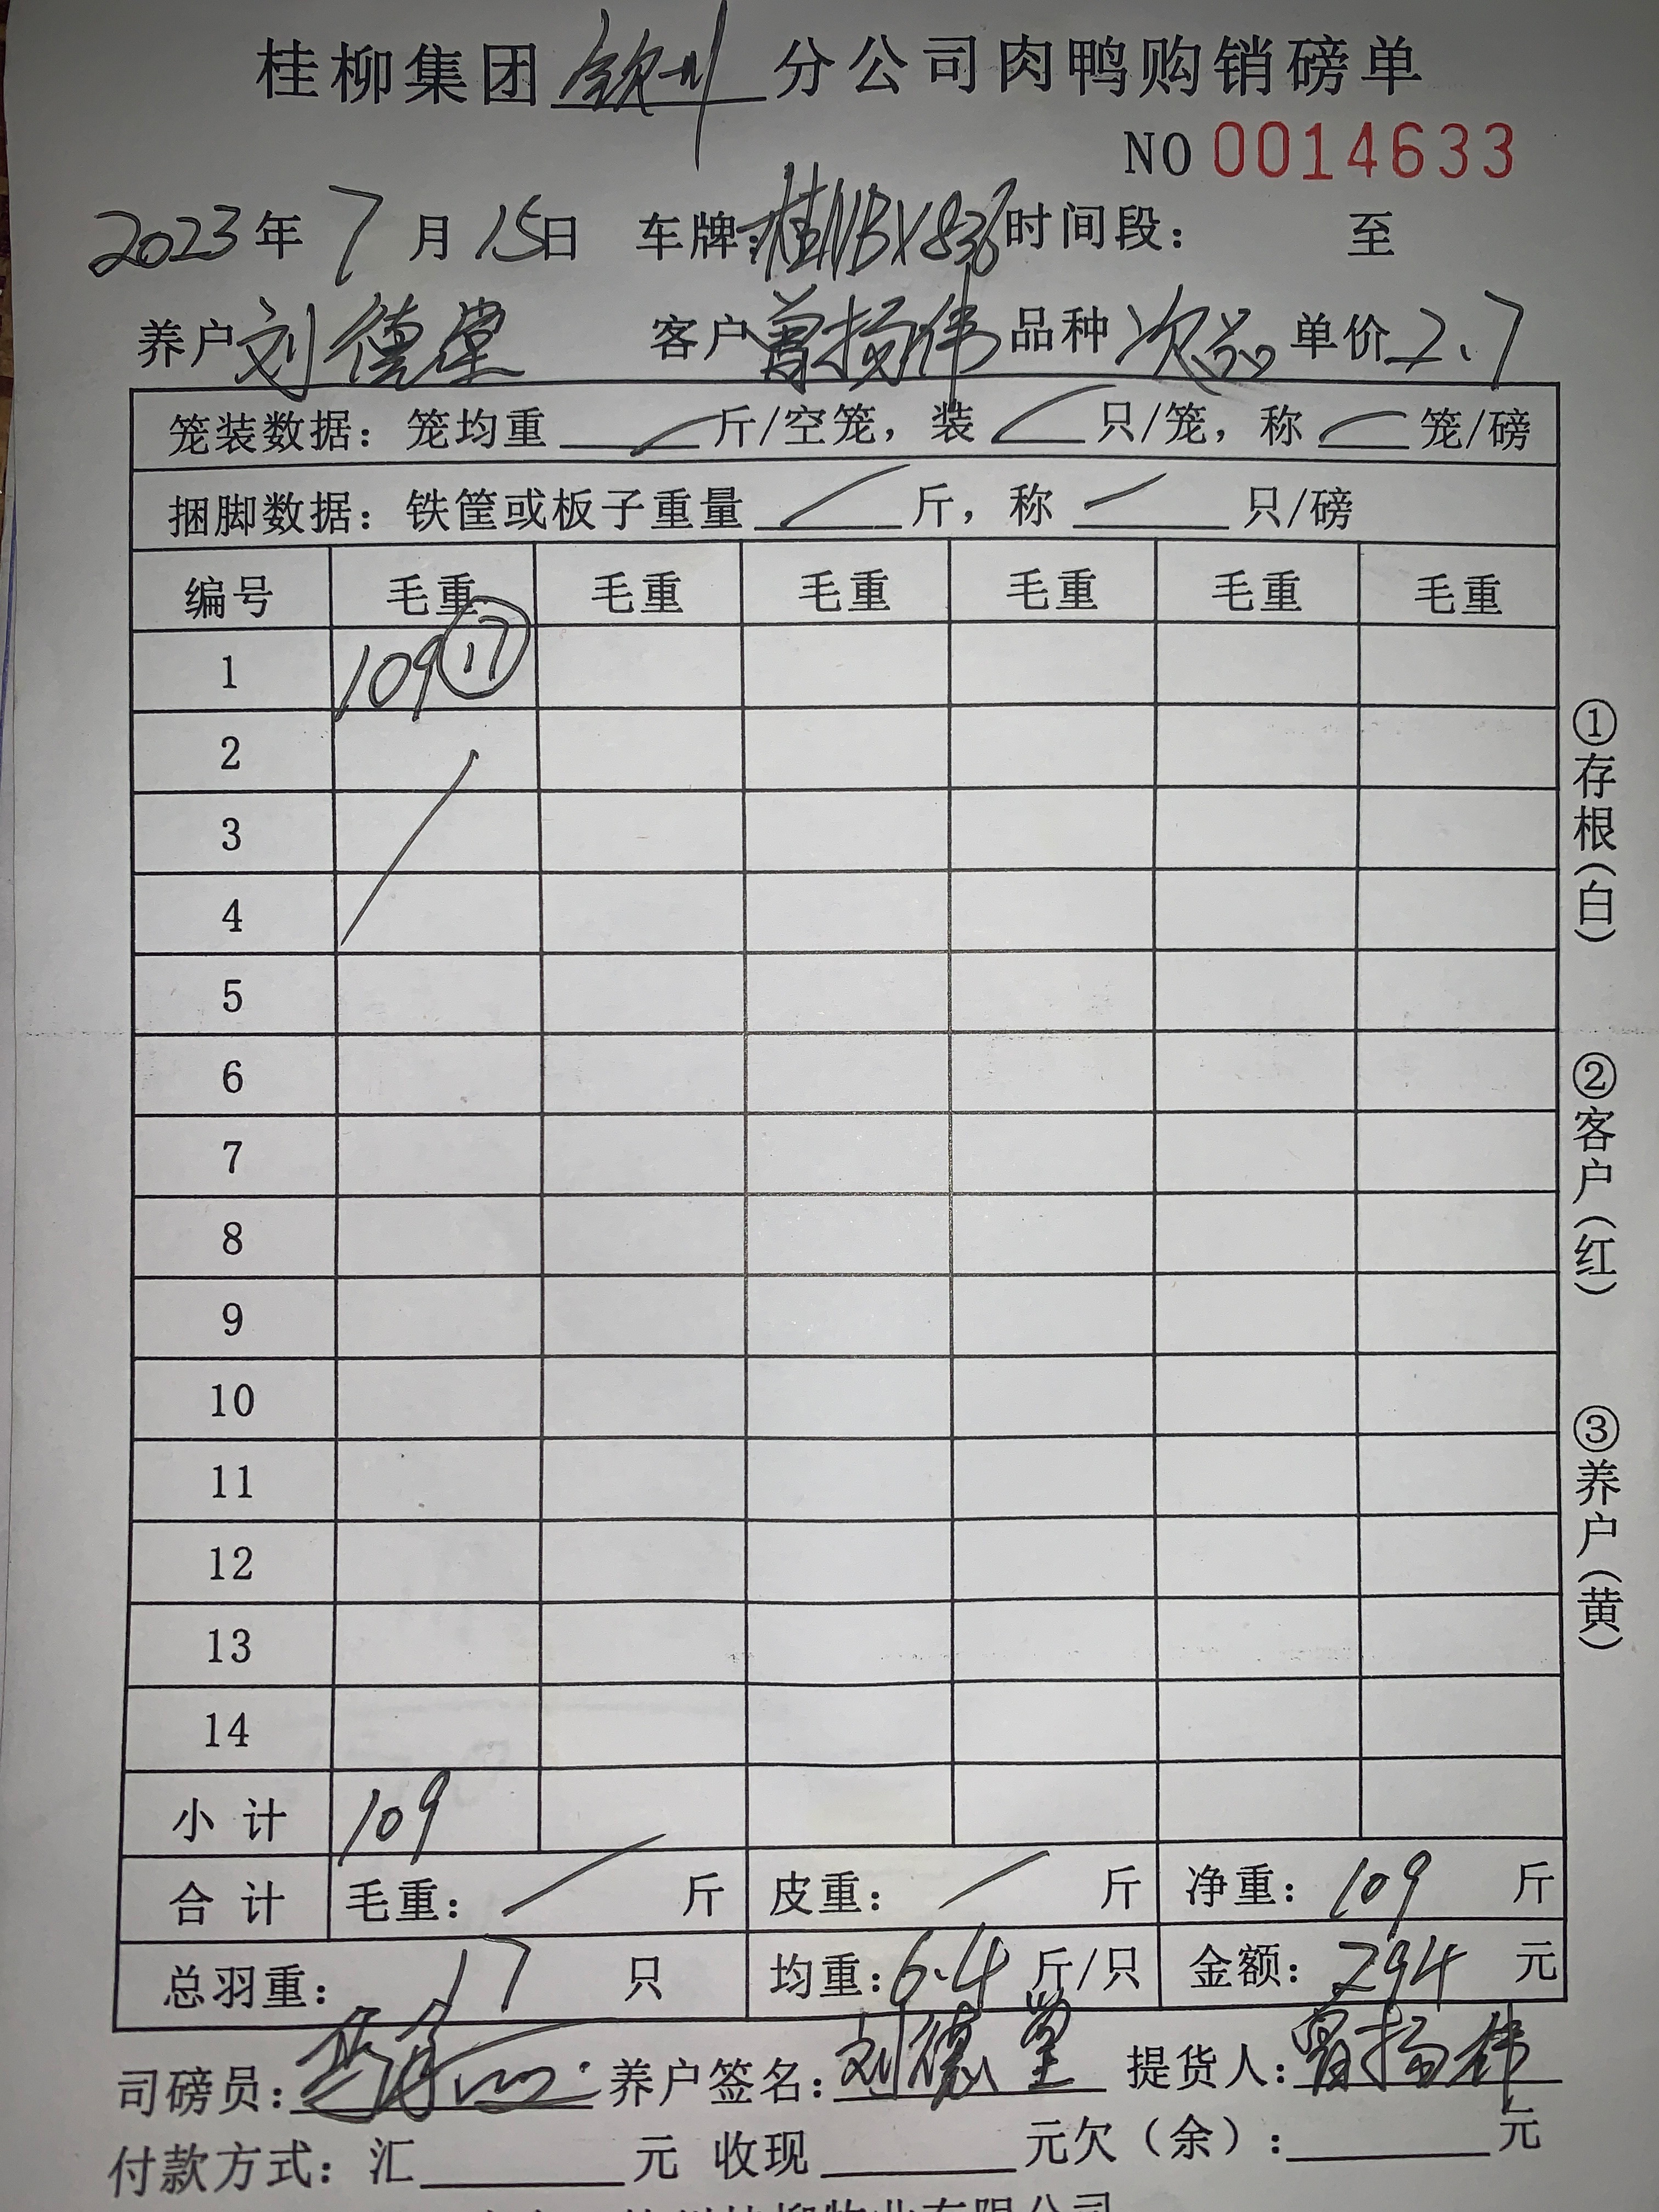 桂柳集团钦州分公司肉鸭购销磅单
NO 0014633
2023年7月15日 车牌:桂NBX836时间段: 至
养户刘德堂 客户曾扬伟品种次品单价2.7
笼装数据: 笼均重 斤/空笼, 装 只/笼, 称 笼/磅
捆脚数据: 铁筐或板子重量 斤, 称 只/磅
编号 毛重 毛重 毛重 毛重 毛重 毛重
1 109 17
2
3
4
5
6
7
8
9
10
11
12
13
14
小计 109
合计 毛重: 斤 皮重: 斤 净重: 109 斤
总羽重: 17 只 均重:6.4斤/只 金额: 294 元
司磅员: 养户签名:刘德堂 提货人:曾扬伟
付款方式: 汇 元 收现 元欠(余): 元
①存根(白)
②客户(红)
③养户(黄)